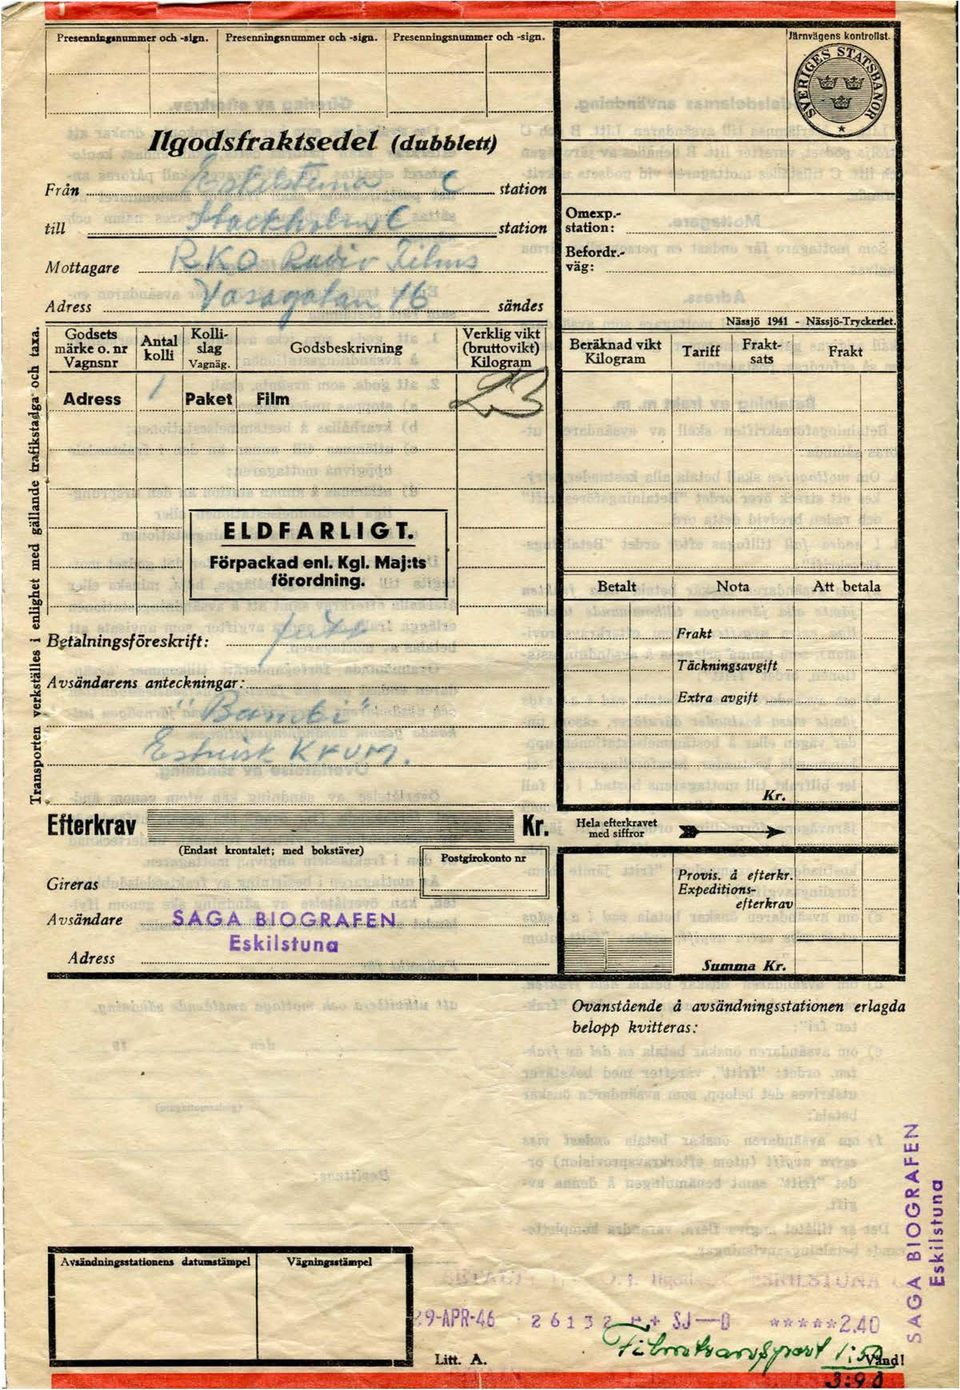 Presenningsnummer och -sign. Presenningsnummer och -sign. Presenningsnummer och -sign.
Järnvägens kontrollst.
SVERIGES STATSBANOR
Ilgodsfraktsedel (dubblett)
Från Eskilstuna C station
till Stockholm C station
Omexp.-
station:
Mottagare RKO Radio Films
Befordr.-
väg:
Adress Vasagatan 16 sändes
Nässjö 1941 - Nässjö-Tryckeriet.
Godsets
märke o. nr
Vagnsnr
Antal
kolli
Kolli-
slag
Vagnäg.
Godsbeskrivning
Verklig vikt
(bruttovikt)
Kilogram
Beräknad vikt
Kilogram
Tariff
Frakt-
sats
Frakt
Adress 1 Paket Film 23
ELDFARLIGT.
Förpackad enl. Kgl. Maj:ts
förordning.
Transporten verkställes i enlighet med gällande trafikstadga och taxa.
Betalt Nota Att betala
Betalningsföreskrift:
Frakt
Täckningsavgift
Avsändarens anteckningar:
Extra avgift
"Bambi"
Kr.
Efterkrav Kr.
Hela efterkravet
med siffror
(Endast krontalet; med bokstäver)
Postgirokonto nr
Gireras
Provis. å efterkr.
Expeditions-
efterkrav
Avsändare SAGA BIOGRAFEN
Eskilstuna
Adress
Summa Kr.
Ovanstående å avsändningsstationen erlagda
belopp kvitteras:
SAGA BIOGRAFEN
Eskilstuna
Avsändningsstationens datumstämpel Vägningsstämpel
29-APR-46 26132 SJ *****2,40
Filmtransport 1:50
Litt. A.
Vänd!
3:90